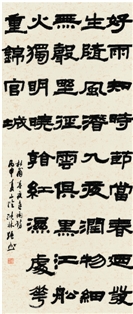 好雨知時節當春迺發
生隨風潛入夜潤物細
無聲野徑雲俱黑江船
火獨明曉看紅濕處花
重錦官城
杜甫春夜喜雨詩
丙申夏